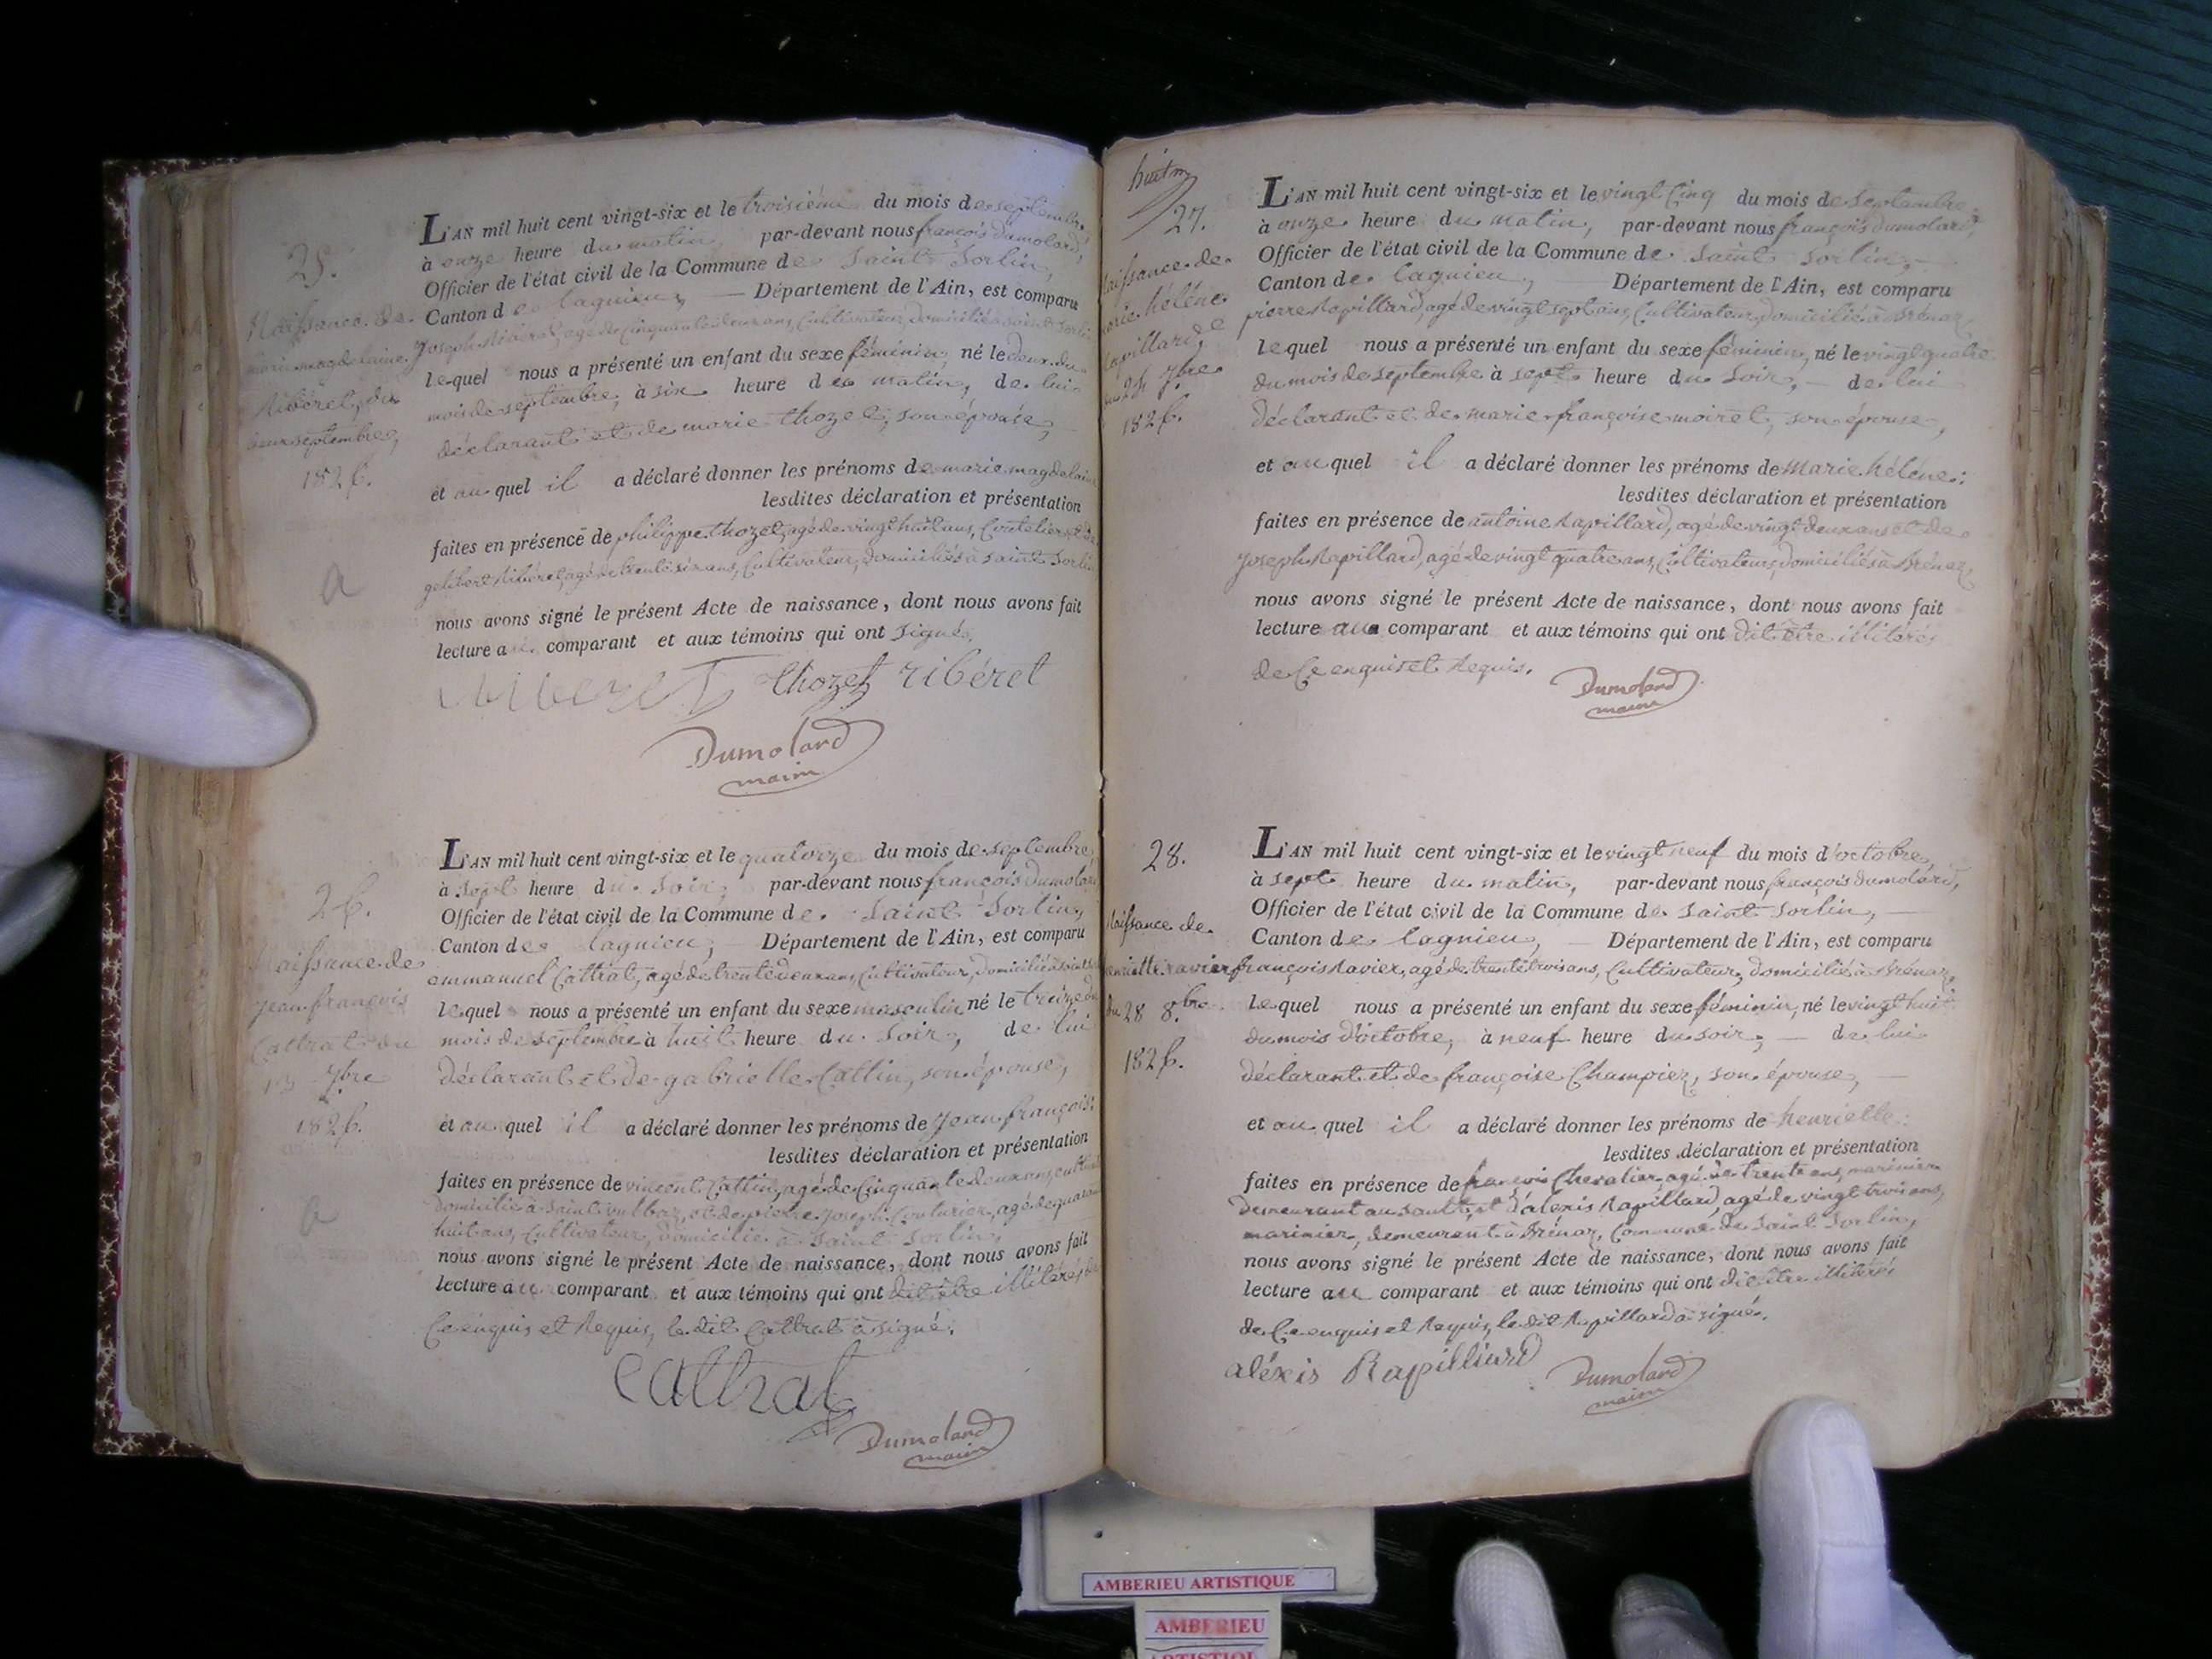 25.
Naissance de
marie magdelaine
Ribéret, du
deux septembre,
1826.
a
L'AN mil huit cent vingt-six et le troisième du mois de septembre,
à onze heure du matin, par-devant nous françois dumolard,
Officier de l'état civil de la Commune de Saint Sorlin,
Canton de lagnieu, — Département de l'Ain, est comparu
Joseph Ribéret, agé de Cinquante deux ans, Cultivateur, domicilié à saint Sorlin
lequel nous a présenté un enfant du sexe féminin, né le deux du
mois de septembre, à six heure du matin, de lui
déclarant et de marie thozet, son épouse,
et au quel il a déclaré donner les prénoms de marie magdelaine
lesdites déclaration et présentation
faites en présence de philippe thozet, agé de vingt huit ans, Coutelier et de
gelibert Ribéret, agé de trente six ans, Cultivateur, domiciliés à saint Sorlin
nous avons signé le présent Acte de naissance, dont nous avons fait
lecture au comparant et aux témoins qui ont signé.
thozet ribéret
Dumolard
maire
26.
Naissance de
Jean françois
Cattrat du
13 7bre
1826.
a
L'AN mil huit cent vingt-six et le quatorze du mois de septembre,
à sept heure du soir, par-devant nous françois dumolard
Officier de l'état civil de la Commune de Saint Sorlin,
Canton de lagnieu, Département de l'Ain, est comparu
emmanuel Cattrat, agé de trente deux ans, Cultivateur, domicilié à saint
lequel nous a présenté un enfant du sexe masculin né le treize du
mois de septembre à huit heure du soir, de lui
déclarant et de gabrielle Cattin, son épouse,
et au quel il a déclaré donner les prénoms de Jean françois:
lesdites déclaration et présentation
faites en présence de vincent Cattin, agé de Cinquante deux ans,
domicilié à saint vulbaz, et de pierre Joseph Couturier, agé de quarante
huit ans, Cultivateur, domicilié à Saint Sorlin,
nous avons signé le présent Acte de naissance, dont nous avons fait
lecture au comparant et aux témoins qui ont dit être illitérés
Ce enquis et Requis, le dit Cattrat à signé.
Cattrat
Dumolard
maire
27.
Naissance de
marie hélène
Rapillard, de
24 7bre
1826.
L'AN mil huit cent vingt-six et le vingt Cinq du mois de Septembre
à onze heure du matin, par-devant nous françois dumolard,
Officier de l'état civil de la Commune de Saint Sorlin, —
Canton de lagnieu, Département de l'Ain, est comparu
pierre Rapillard, agé de vingt sept ans, Cultivateur, domicilié à Brénaz
lequel nous a présenté un enfant du sexe féminin, né le vingt quatre
du mois de septembre à sept heure du Soir, — de lui
déclarant et de marie françoise moiret, son épouse,
et au quel il a déclaré donner les prénoms de Marie hélène:
lesdites déclaration et présentation
faites en présence de antoine Rapillard, agé de vingt deux ans et de
Joseph Rapillard, agé de vingt quatre ans, Cultivateurs, domiciliés à Brénaz,
nous avons signé le présent Acte de naissance, dont nous avons fait
lecture au comparant et aux témoins qui ont dit être illitérés
de Ce enquis et Requis.
Dumolard
maire
28.
Naissance de
henriette ravier
du 28 8bre
1826.
L'AN mil huit cent vingt-six et le vingt neuf du mois d'octobre,
à sept heure du matin, par-devant nous françois dumolard,
Officier de l'état civil de la Commune de Saint Sorlin, —
Canton de lagnieu, — Département de l'Ain, est comparu
françois Ravier, agé de trente trois ans, Cultivateur, domicilié à Brénaz,
lequel nous a présenté un enfant du sexe féminin, né le vingt huit
du mois d'octobre, à neuf heure du soir, — de lui
déclarant et de françoise Champier, son épouse, —
et au quel il a déclaré donner les prénoms de henriette:
lesdites déclaration et présentation
faites en présence de françois Chevalier, agé de trente ans, marinier
demeurant au sault, et d'alexis Rapillard, agé de vingt trois ans,
marinier, demeurant à Brénaz, Commune de Saint Sorlin,
nous avons signé le présent Acte de naissance, dont nous avons fait
lecture au comparant et aux témoins qui ont dit être illitérés
de Ce enquis et Requis, le dit Rapillard à signé.
aléxis Rapilliard
Dumolard
maire
AMBERIEU ARTISTIQUE
AMBERIEU
ARTISTIQUE